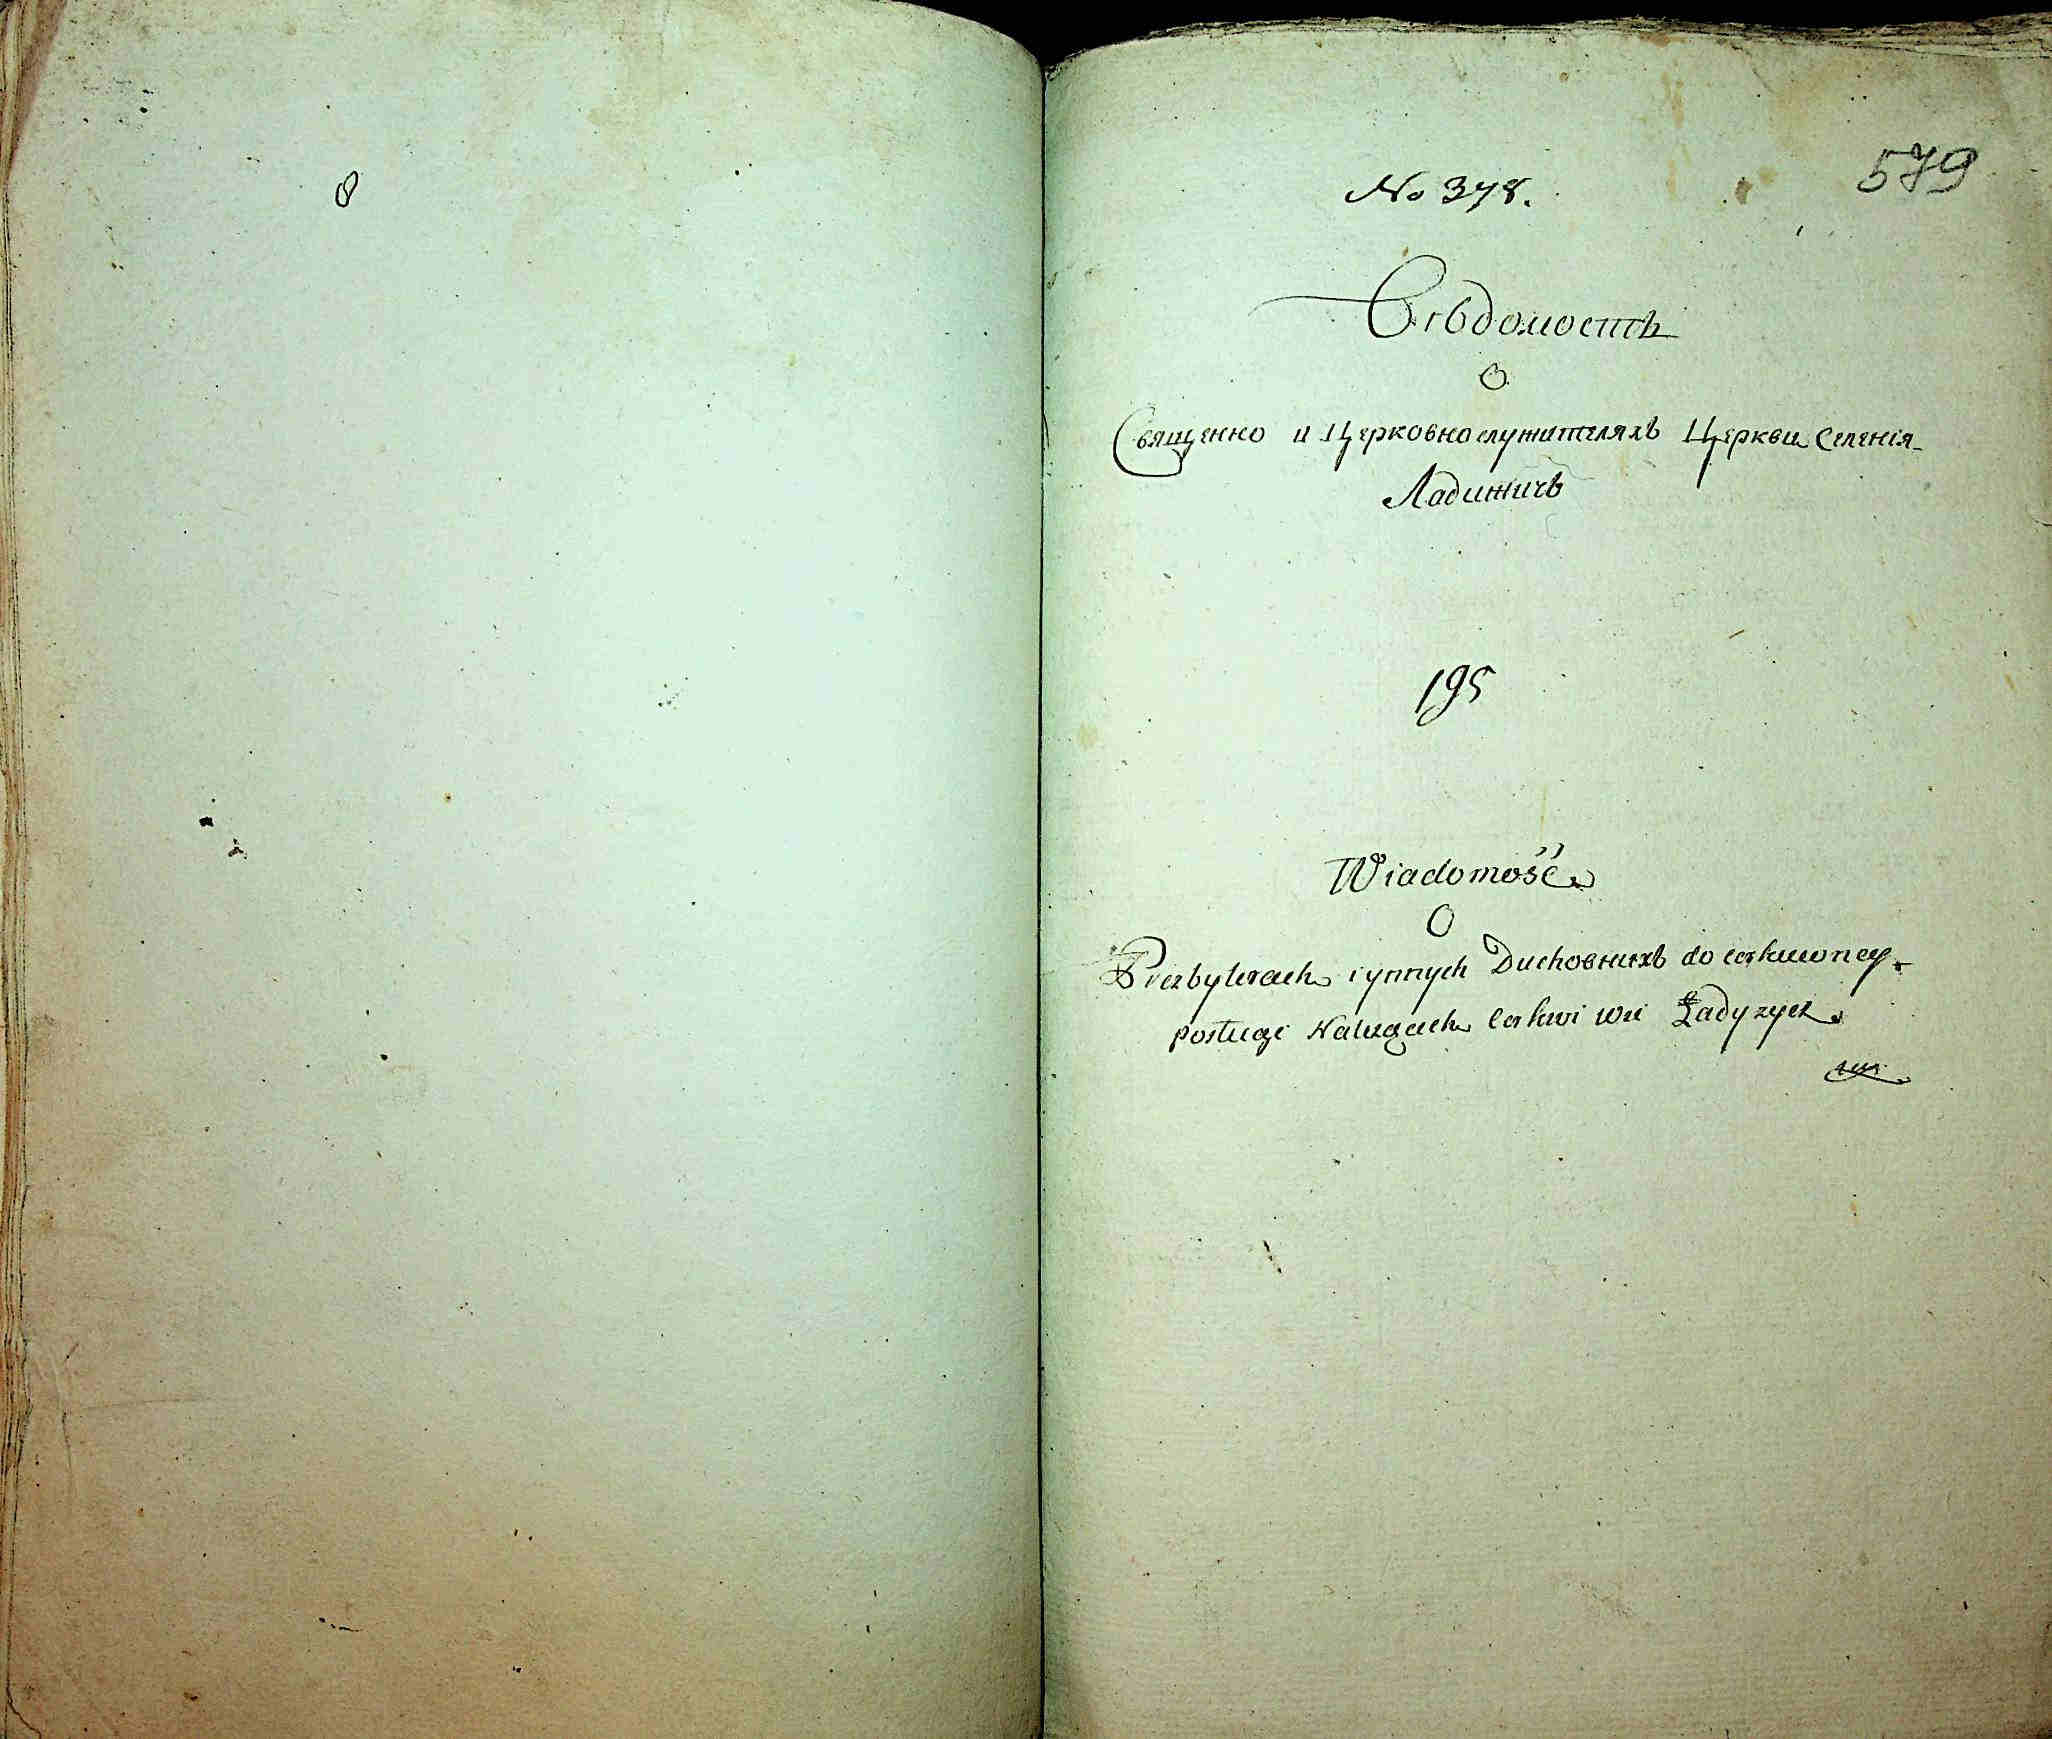 8
No 378.
579
Вѣдомость
О
Священно и Церковнослужителяхъ Церкви Селенія
Ладижичъ
195
Wiadomość
O
Prezbyterach i ynnych Duchовныхъ do cerkwoney
posługi Należących Cerkwi wsi Ładyzycz